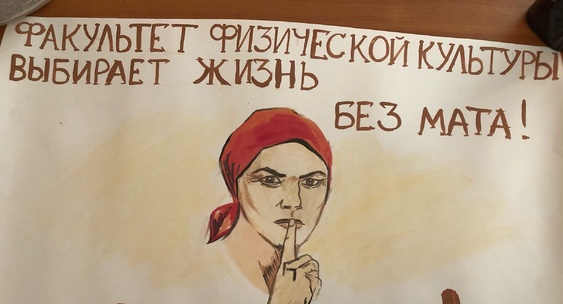 ФАКУЛЬТЕТ ФИЗИЧЕСКОЙ КУЛЬТУРЫ
ВЫБИРАЕТ ЖИЗНЬ
БЕЗ МАТА!